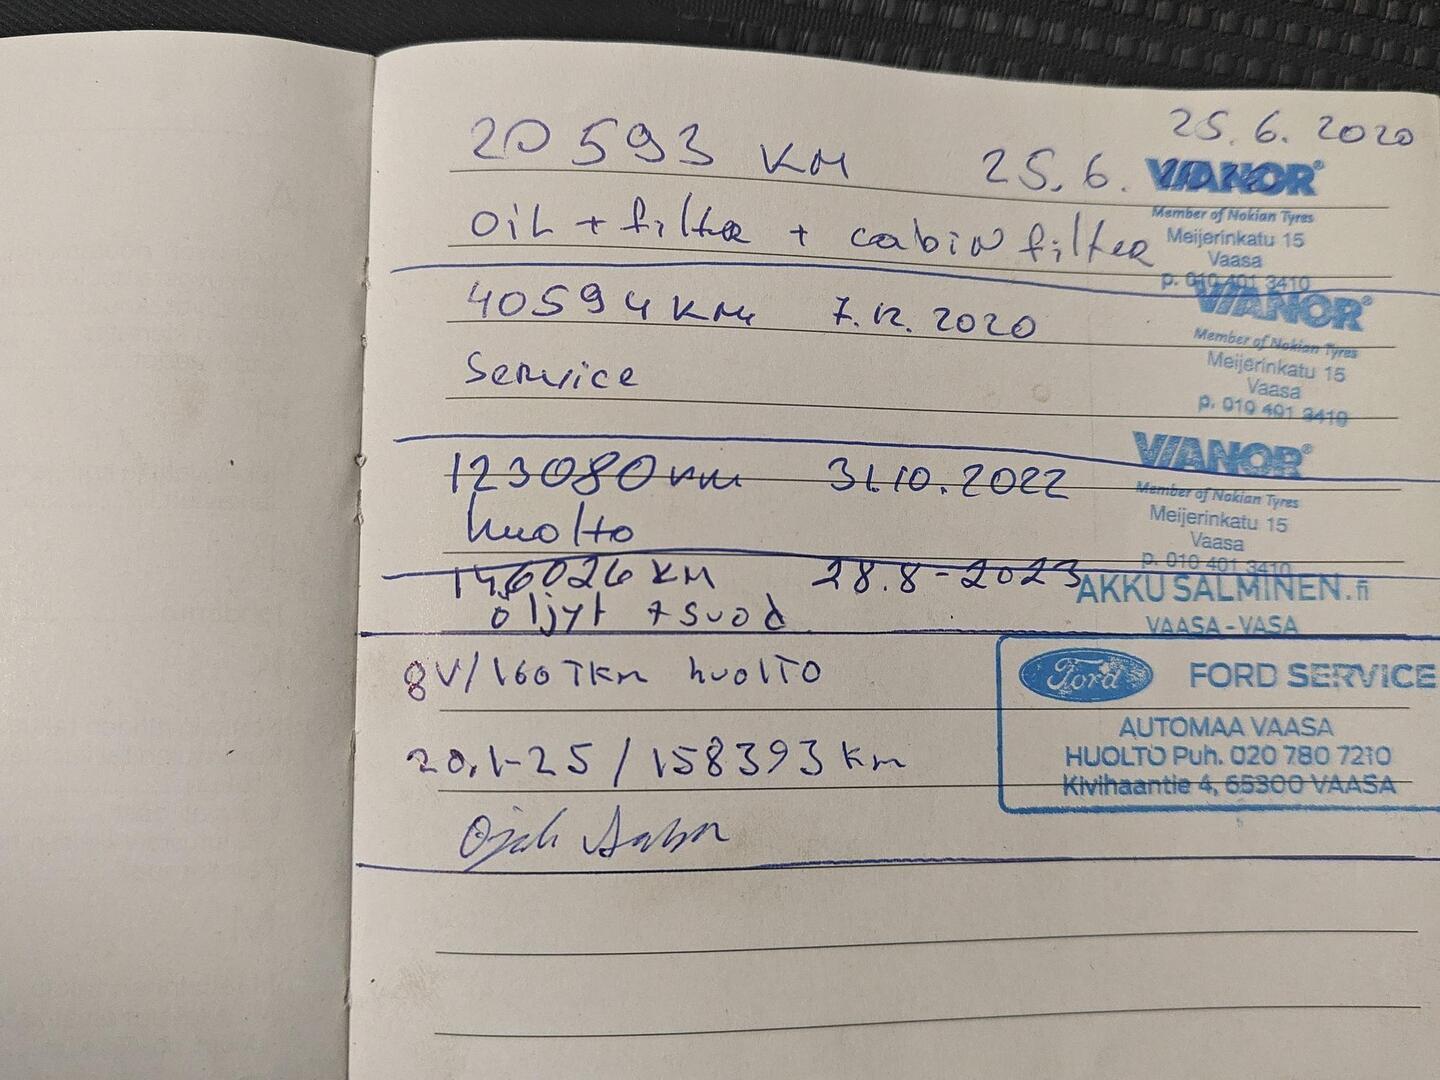 25.6. 2020
20 593 KM 25.6.
VIANOR
Member of Nokian Tyres
Meijerinkatu 15
Vaasa
p. 010 401 3410
oil + filter + cabin filter
40594 KM 7.12. 2020
Service
VIANOR
Member of Nokian Tyres
Meijerinkatu 15
Vaasa
p. 010 401 3410
123080 km 31.10.2022
huolto
VIANOR
Member of Nokian Tyres
Meijerinkatu 15
Vaasa
p. 010 401 3410
146026 KM 28.8-2023
öljyt + suod
AKKU SALMINEN.fi
VAASA - VASA
8V/160 TKm huolto
20.1-25 / 158393 km
Ford FORD SERVICE
AUTOMAA VAASA
HUOLTO Puh. 020 780 7210
Kivihaantie 4, 65300 VAASA